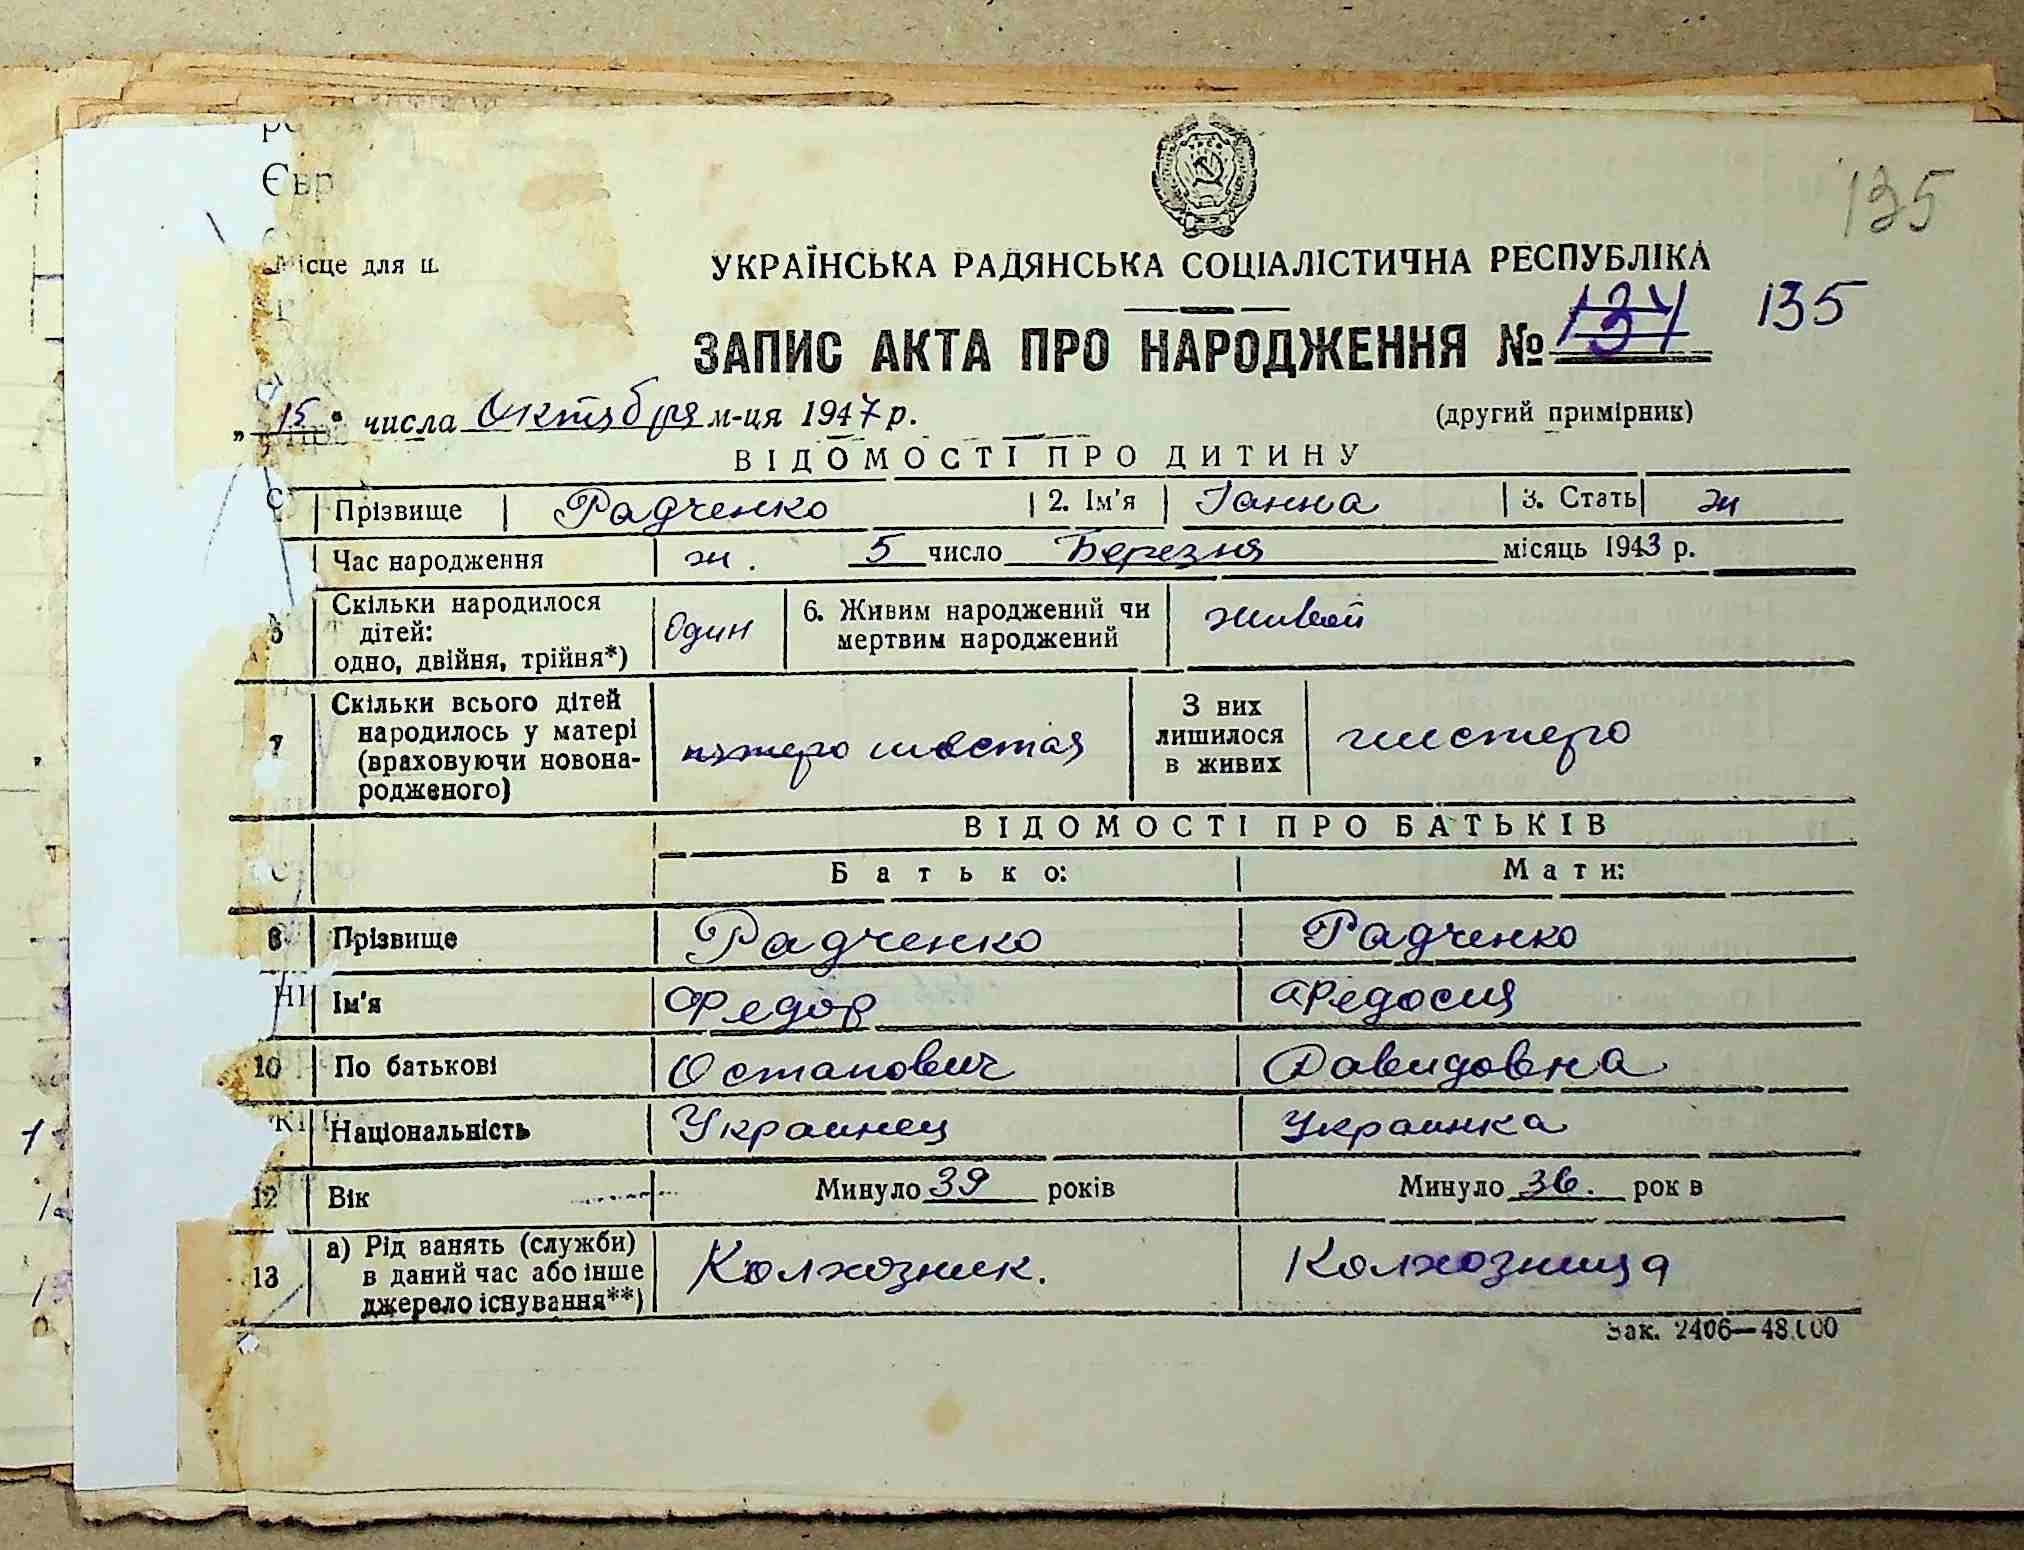 135
Євр
ісце для ш
УКРАЇНСЬКА РАДЯНСЬКА СОЦІАЛІСТИЧНА РЕСПУБЛІКА
ЗАПИС АКТА ПРО НАРОДЖЕННЯ № 134 135
„15" числа Октября м-ця 1947 р. (другий примірник)
ВІДОМОСТІ ПРО ДИТИНУ
Прізвище Радченко 2. Ім'я Ганна 3. Стать ж
Час народження ж. 5 число Березня місяць 1943 р.
5 Скільки народилося дітей: одно, двійня, трійня*) Один 6. Живим народжений чи мертвим народжений живой
7 Скільки всього дітей народилось у матері (враховуючи новонародженого) шестая З них лишилося в живих шистеро
ВІДОМОСТІ ПРО БАТЬКІВ
Батько: Мати:
8 Прізвище Радченко Радченко
Ім'я Федор Федосия
10 По батькові Остапович Давидовна
Національність Украинец Украинка
12 Вік Минуло 39 років Минуло 36. рок в
13 а) Рід занять (служби) в даний час або інше джерело існування**) Колхозник. Колхозница
Зак. 2406—48.000